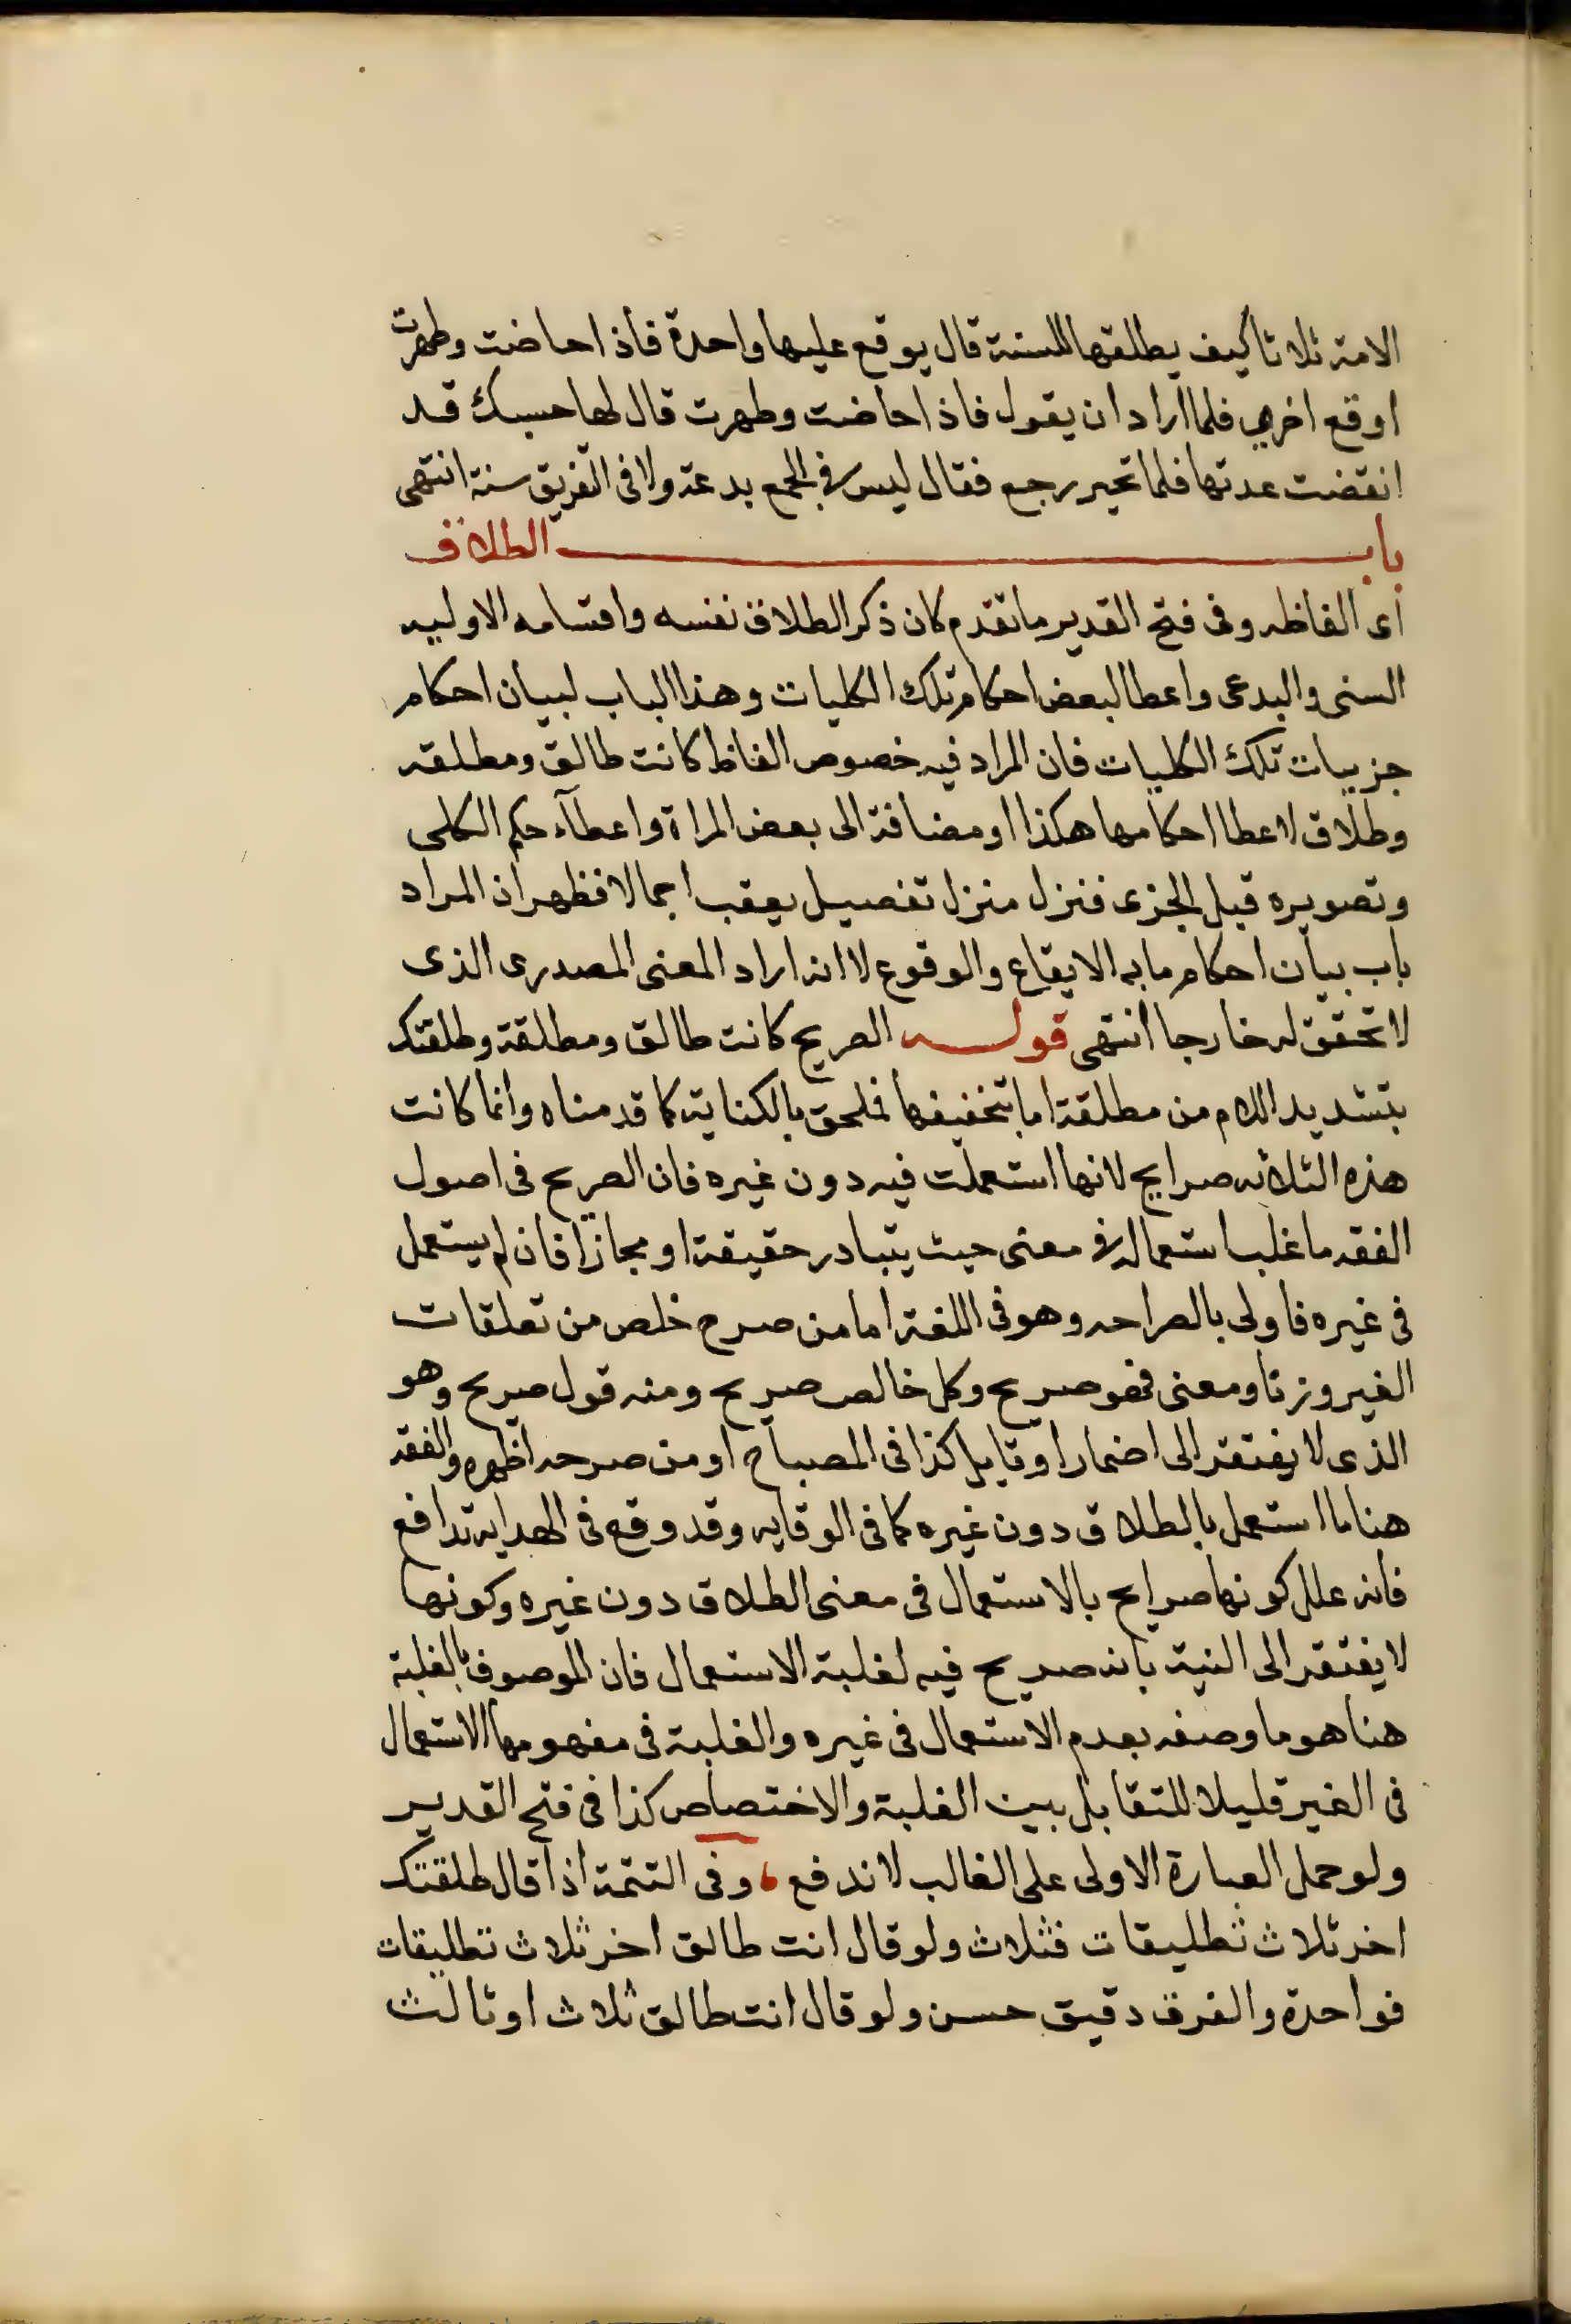 الامة ثلاثا كيف يطلقها للسنة قال يوقع عليها واحدة فاذا حاضت وطهرت
اوقع اخرى فلما اراد ان يقول فاذا حاضت وطهرت قال لها حسبك قد
انقضت عدتها فلما تحير رجع فقال ليس في الجمع بدعة ولا في التفريق سنة انتهى
باب الطلاق
اى الفاظه وفى فتح القدير ما تقدم كان ذكر الطلاق نفسه واقسامه الاوليه
السنى والبدعى واعطا لبعض احكام تلك الكليات وهذا الباب لبيان احكام
جزييات تلك الكليات فان المراد فيه خصوص الفاظ كانت طالق ومطلقه
وطلاق لاعطا احكامها هكذا او مضافة الى بعض المراة واعطآء حكم الكلى
وتصويره قبل الجزى فنزل منزل تفصيل يعقب اجمالا فظهر ان المراد
باب بيان احكام ما به الايقاع والوقوع لا انه اراد المعنى المصدرى الذى
لا تحقق له خارجا انتهى قوله الصريح كانت طالق ومطلقة وطلقتك
بتشديد اللام من مطلقة اما بتخفيفها فملحق بالكناية كما قدمناه وانما كانت
هذه الثلاثه صرايح لانها استعملت فيه دون غيره فان الصريح فى اصول
الفقه ما غلب استعماله فى معنى حيث يتبادر حقيقة او مجازا فان لم يستعمل
فى غيره فاولى بالصراحه وهو فى اللغة اما من صرح خلص من تعلقات
الغير وزنا ومعنى فهو صريح وكل خالص صريح ومنه قول صريح وهو
الذى لا يفتقر الى اضمار او تاويل كذا فى المصباح او من صرحه اظهره والفقه
هنا ما استعمل بالطلاق دون غيره كما فى الوقايه وقد وقع فى الهدايه تدافع
فانه علل كونها صرايح بالاستعمال فى معنى الطلاق دون غيره وكونها
لا يفتقر الى النية بانه صريح فيه لغلبة الاستعمال فان الموصوف بالغلبة
هنا هو ما وصفه بعدم الاستعمال فى غيره والغلبة فى مفهومها الاستعمال
فى الغير قليلا للتقابل بين الغلبة والاختصاص كذا فى فتح القدير
ولو حمل العبارة الاولى على الغالب لاندفع وفى التتمة اذا قال طلقتك
اخر ثلاث تطليقات فثلاث ولو قال انت طالق اخر ثلاث تطليقات
فواحدة والفرق دقيق حسن ولو قال انت طالق ثلاث او ثالث